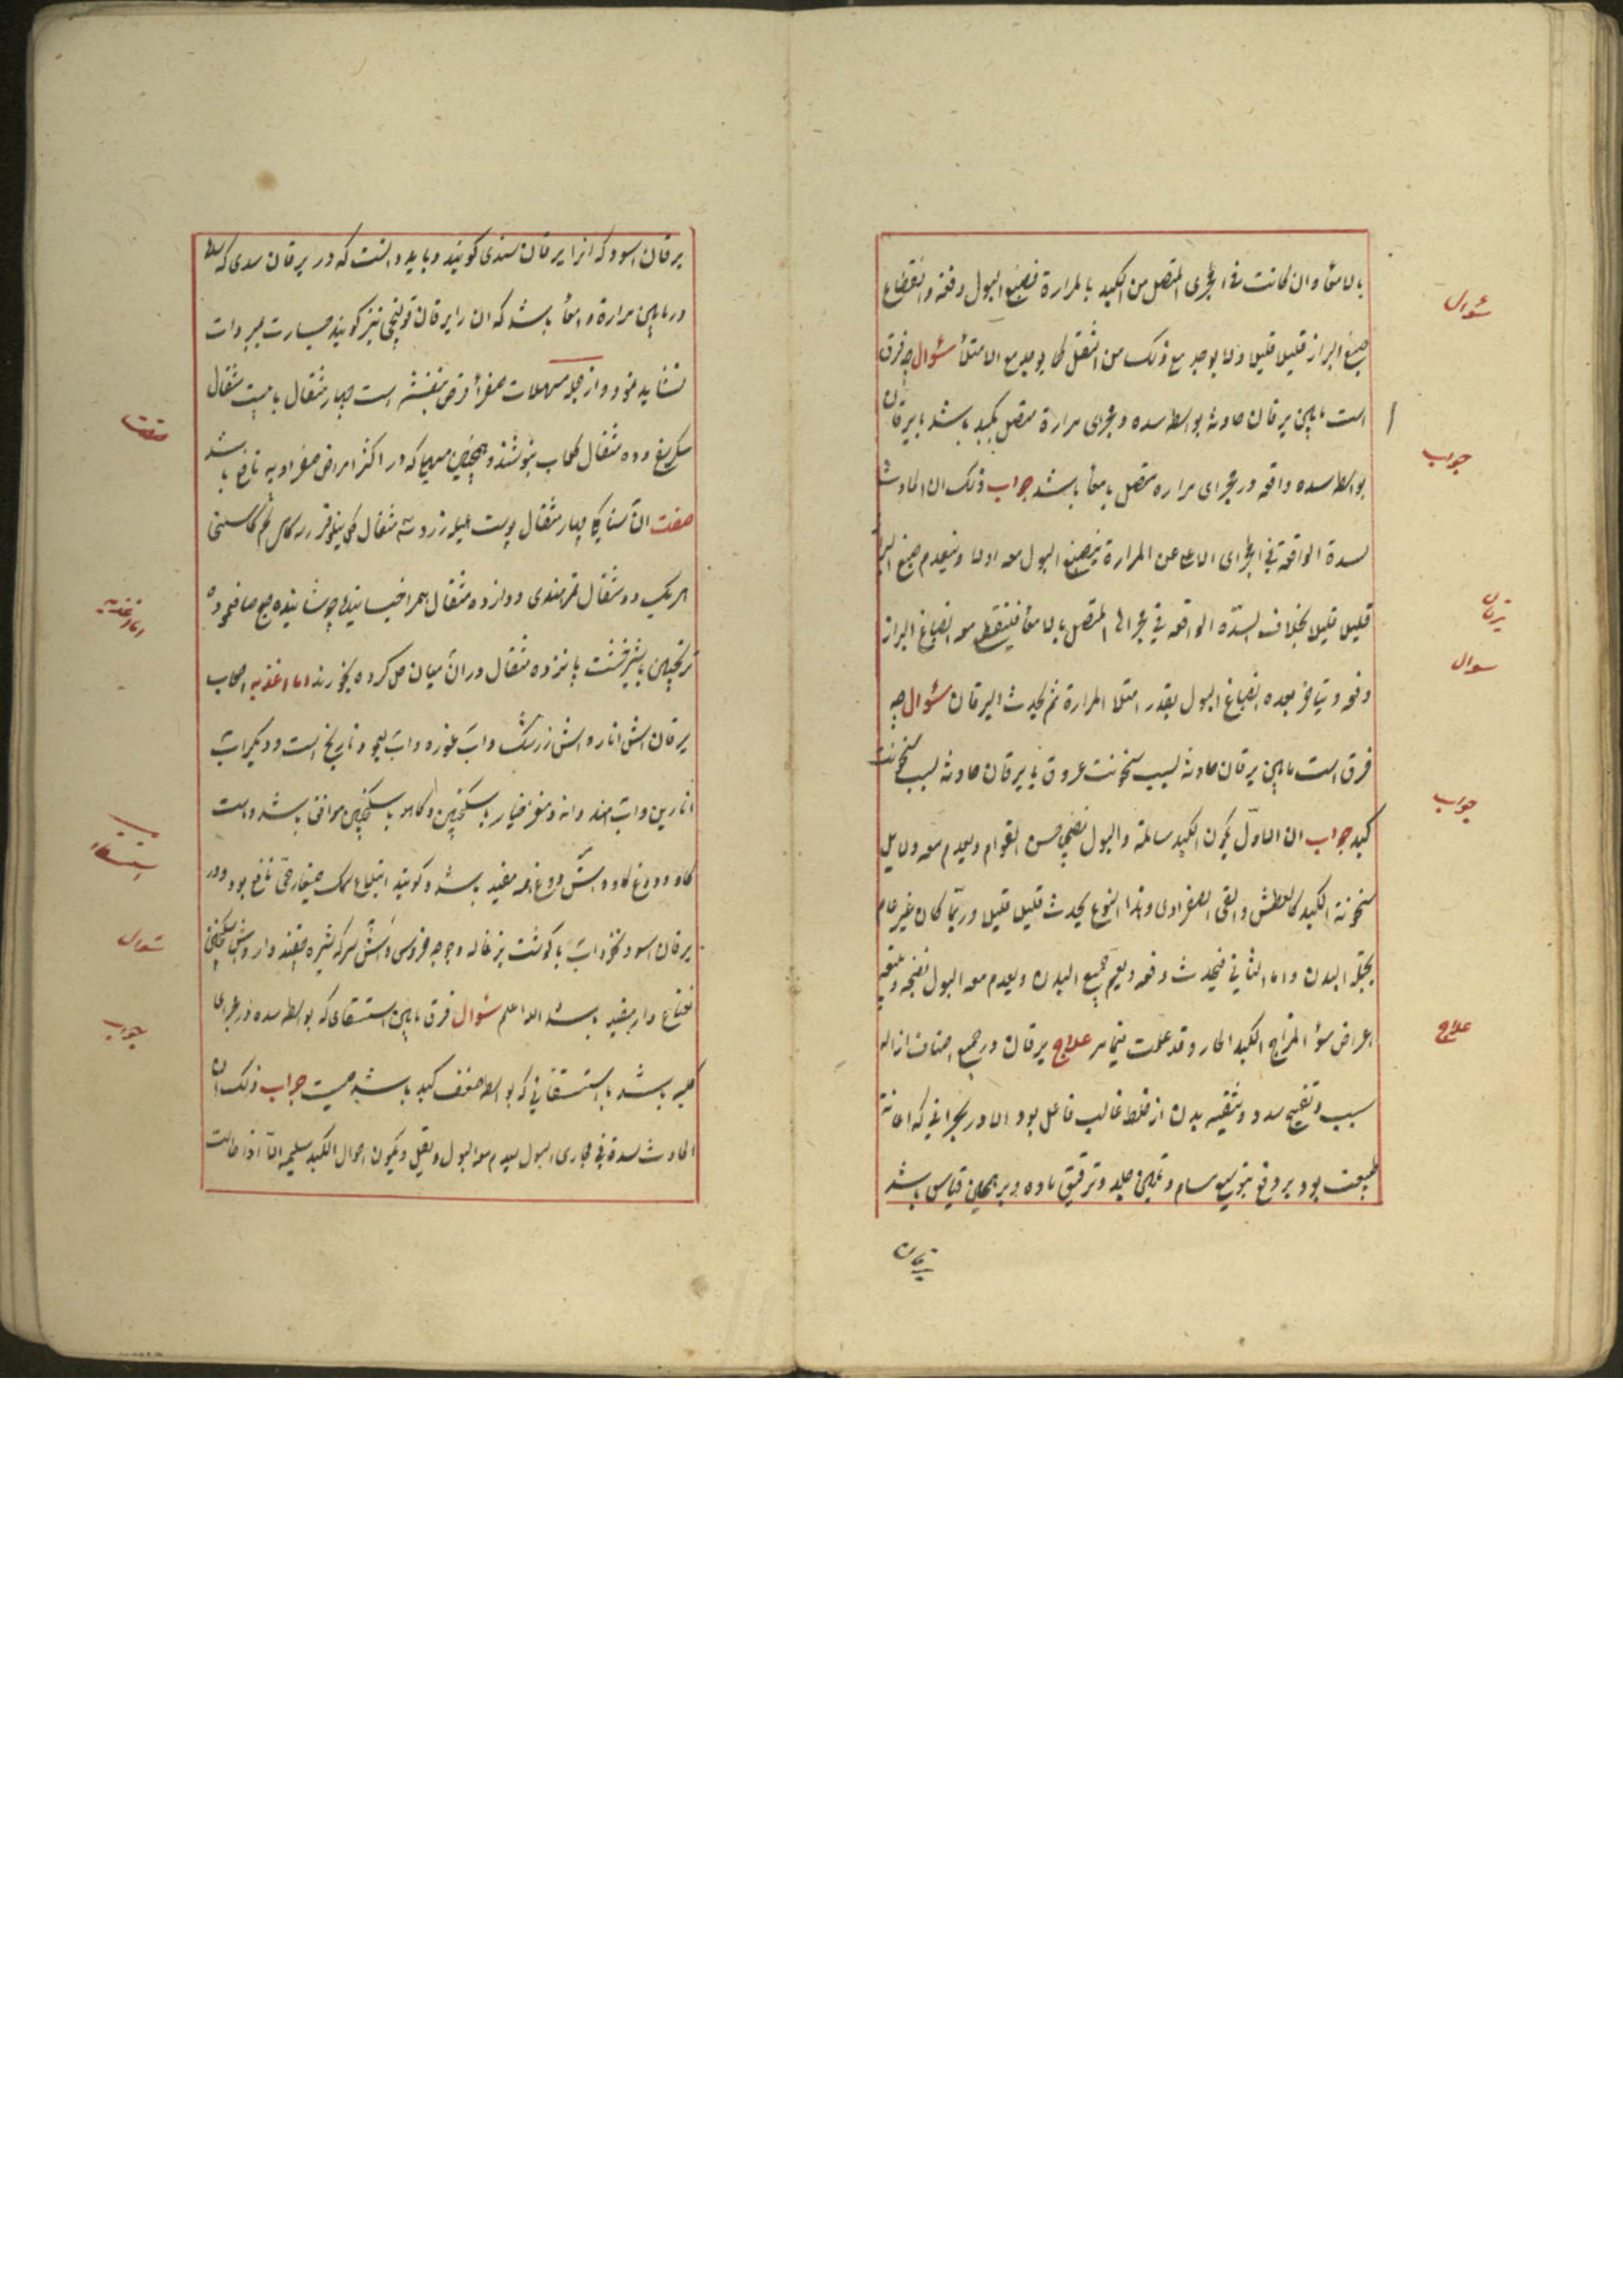 بالامعاء وان كانت فى المجرى المتصل من الكبد بالمرارة فيصبغ البول دفعة وانقطاع
صبغ البراز قليلا قليلا ولا يوجد مع ذلك من الثقل كما يوجد مع الامتلاء سؤال چه فرق
است مابین یرقان حادثه بواسطه سده مجرای مرارة متصل بکبد باشد با یرقان
بواسطه سده واقعه در مجرای مراره متصل بامعا باشد جواب ذلك ان الحادث
لسدة الواقعة في المجرى الاعا عن المرارة ينصبغ البول معه اولا وينعدم صبغ البراز
قليلا قليلا بخلاف السدّه الواقعه في مجرى المتصل بالامعا فينقطع معه انصباغ البراز
دفعه ويتاخر بعده انصباغ البول بقدر امتلا المرارة ثم يحدث اليرقان سؤال چه
فرق است مابین یرقان حادثه بسبب سخونت عروق با یرقان حادثه بسبب سخونت
كبد جواب ان الاول يكون الكبد سالمة والبول نضيج حسن القوام ويعدم معه دلایل
سخونة الكبد كالعطش والقى الصفراوى وهذا النوع يحدث قليل قليل وربّما كان غير عام
بجملة البدن واما الثاني فيحدث دفعه ويعم جميع البدن ويعدم معه البول نضجه ويتبعه
اعراض سؤ المزاج الكبد الحار وقد علمت فيما مر علاج یرقان در جمیع اصناف ازاله
سبب وتفتیح سدد وتنقیه بدن از خلط غالب فاعل بود اما در بحرانی که اعانة
طبیعت بود بر دفع بتوسیع مسام وتلیین جلد وترقیق ماده وبر همین قیاس باشد
یرقان
سؤال
جواب
یرقان
سوال
جواب
علاج
یرقان اسود که انرا یرقان سندی کویند وباید دانست که در یرقان سدی که سده
در مابین مرارة و امعا باشد که ان را یرقان قولنجی نیز کویند جسارت بمبردات
نشاید نمود واز جمله مسهلات صفرا قرص بنفشه است چهار مثقال با بیست مثقال
سکر یغ وده مثقال کلاب بنوشند وهمچنین مسهل که در اکثر امراض صفراویه نافع باشد
صفت ان سنا مکی چهار مثقال پوست هلیله زرد سه مثقال کل نیلوفر تخم کاسنی
هر یک دو مثقال تمر هندی دوازده مثقال همرا خیسانیده جوشانیده صبح صاف نموده
ترنجبین با شیرخشت پانزده مثقال در ان میان حل کرده بخورند اما اغذیه اصحاب
یرقان اش انار و اش زرشک واب غوره واب لیمو ونارنج است ودیکر اب
انارین واب هندوانه ومغز خیار با سکنجبین وکاهو با سکنجبین موافق باشد وماست
کاو ودوغ کاو واش دوغ همه مفید باشد وکویند ابتلاع سمک صغار حیّ نافع بود ودر
یرقان اسود نخود اب با کوشت بزغاله وجوجه خروس واش سرکه شیره قند دار واش سکنجبین
نعناع دار مفید باشد الله اعلم سؤال فرق مابین استسقای که بواسطه سده در مجرای
کلیه باشد با استسقائی که بواسطه ضعف کبد باشد چیست جواب ذلك ان
الحادث لسدة في مجاری البول يعدم معه البول ويقل ويكون احوال الكبد سليمه الّا اذا طالت
صفت
اما اغذیه
استسقاء
سؤال
جواب